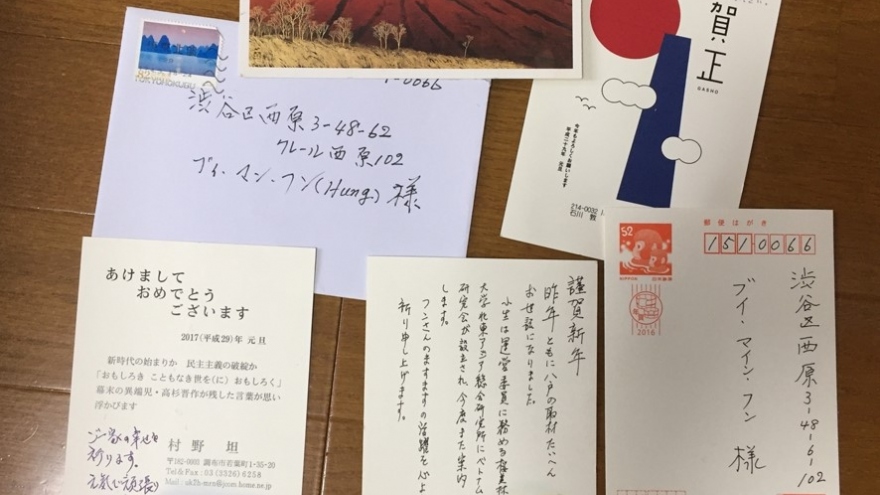 渋谷区西原3-48-62
クレール西原102
ブイ・マン・フン(Hung)様
賀正
GASHO
今年もよろしくお願いします
平成二十九年 元旦
214-0032
石川
あけまして
おめでとう
ございます
2017(平成29)年 元旦
新時代の始まりか 民主主義の破綻か
「おもしろき こともなき世を(に) おもしろく」
幕末の異端児・高杉晋作が残した言葉が思い
浮かびます
ご一家の幸せを
祈ります。
村野 坦
〒182-0003 調布市若葉町1-35-20
Tel & Fax : 03 (3326) 6258
謹賀新年
昨年ともに八戸の取材たいへん
お世話になりました。
小生は運営委員に務める
大学北東アジア総合研究所にベトナム
研究会が設立され、今度また案内
します。
フンさんのますますの活躍を心よ
祈り申し上げます。
郵便はがき
52
NIPPON
日本郵便
2016
151 0066
渋谷区西原3-48-6-102
ブイ・マイン・フン 様